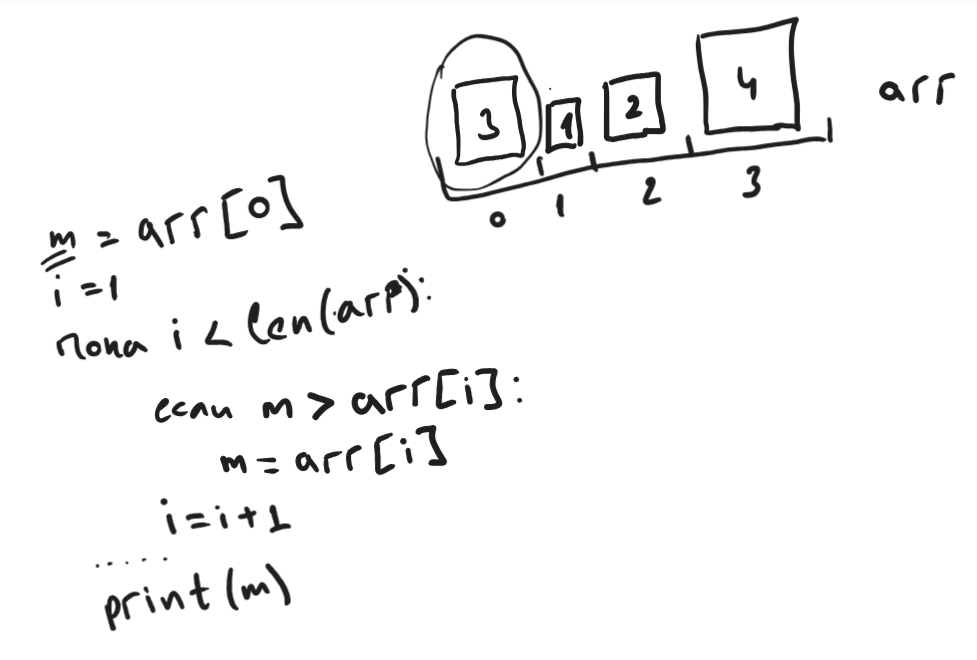 3 1 2 4 arr
0 1 2 3
m = arr[0]
i = 1
пока i < len(arr):
если m > arr[i]:
m = arr[i]
i = i + 1
.....
print(m)